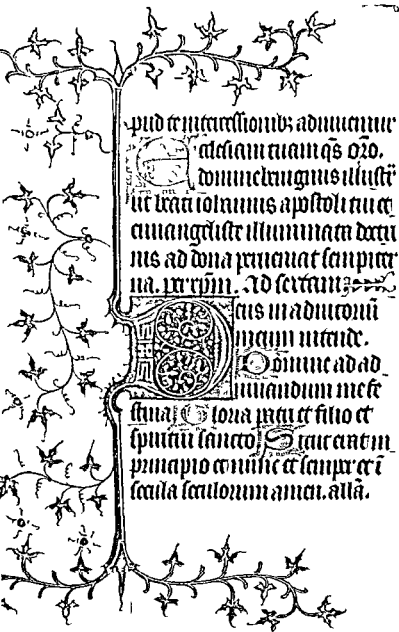 pud te intercessionib; adiuuemur
Ecclesiam tuam qs̄ oro.
domine benignus illustr̄
ut beati iohannis apostoli tui et
euuangeliste illuminata doctri
nis ad dona perueniat sempiter
na. per xp̄m. Ad sextam
Deus in adiutoriū
meum intende.
Domine ad ad
iuuandum me fe
stina Gloria patri et filio et
spiritui sancto Sicut erat in
principio et nunc et semper et ī
secula seculorum amen. allā.